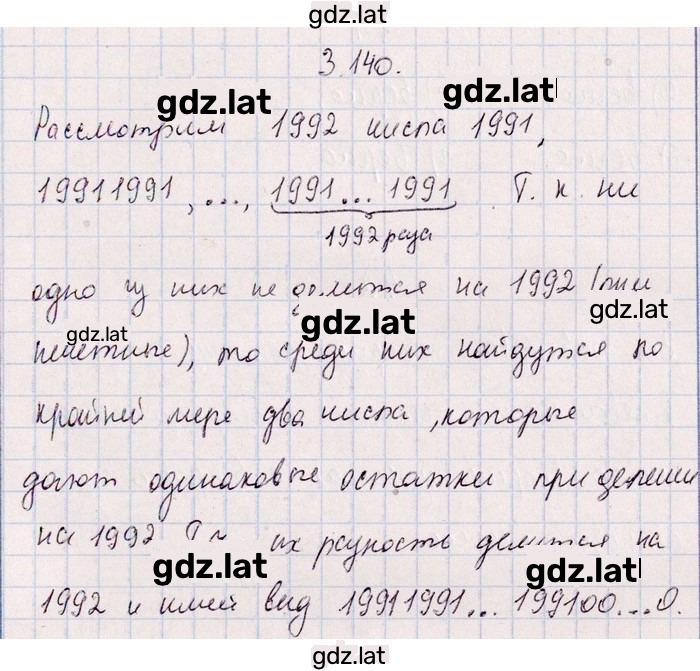 gdz.lat
3.140.
gdz.lat gdz.lat
Рассмотрим 1992 числа 1991,
19911991, ..., 1991...1991 Т. к. ни
1992 раза
одно из них не делится на 1992 (они
gdz.lat gdz.lat
нечетные), то среди них найдутся по
крайней мере два числа, которые
дают одинаковые остатки при делении
на 1992 их разность делится на
gdz.lat gdz.lat
1992 и имей вид 19911991...199100...0.
gdz.lat